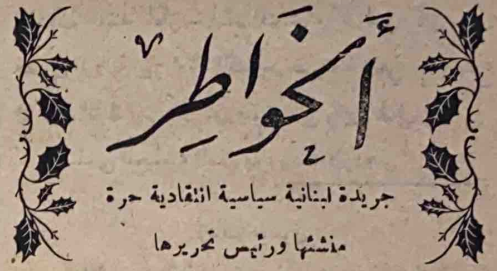 أَلْخَوَاطِرْ
جريدة لبنانية سياسية انتقادية حرة
منشئها ورئيس تحريرها